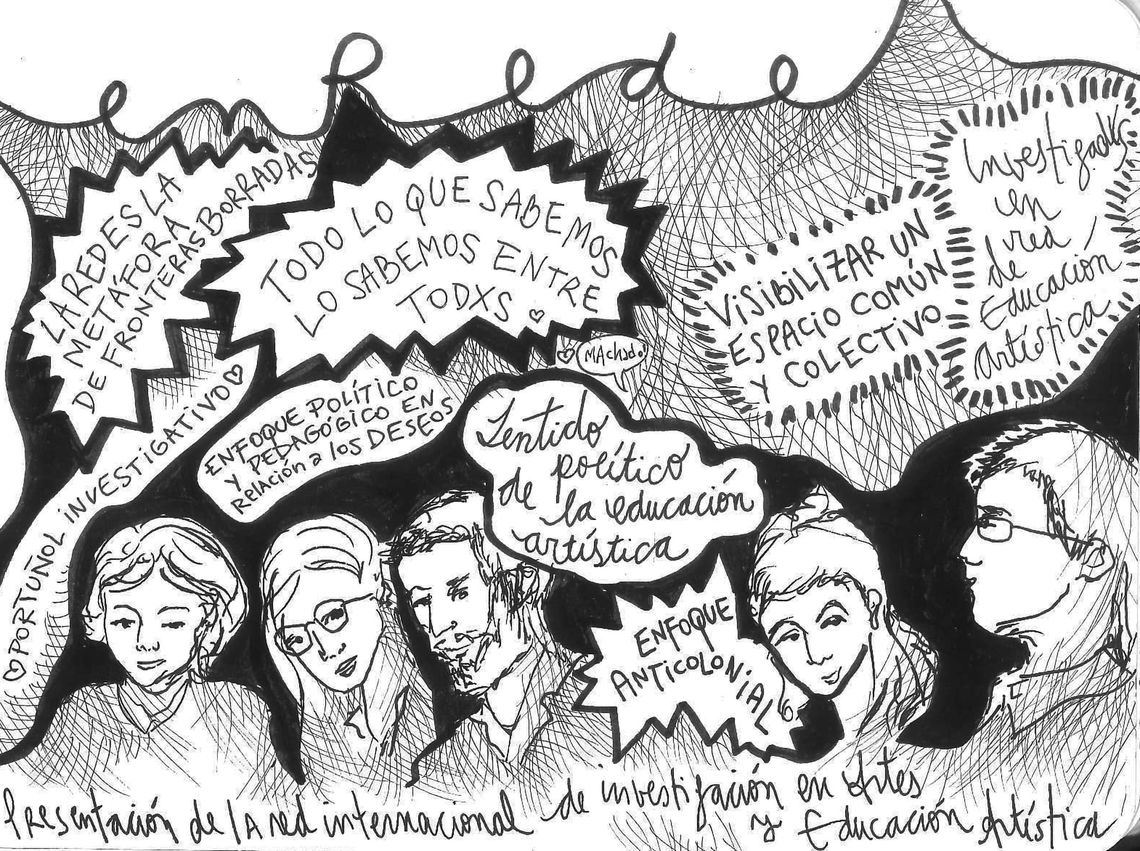 en Rede
LA RED ES LA
METÁFORA
DE FRONTERAS BORRADAS
TODO LO QUE SABEMOS
LO SABEMOS ENTRE
TODXS
MAchado
VISIBILIZAR UN
ESPACIO COMÚN
Y COLECTIVO
en
red
de
Educación
Artística
PORTUÑOL INVESTIGATIVO
ENFOQUE POLÍTICO
Y PEDAGÓGICO EN
RELACIÓN A LOS DESEOS
Sentido
político
de la educación
artística
ENFOQUE
ANTICOLONIAL
Presentación de lA red internacional de investigación en Artes
y Educación Artística